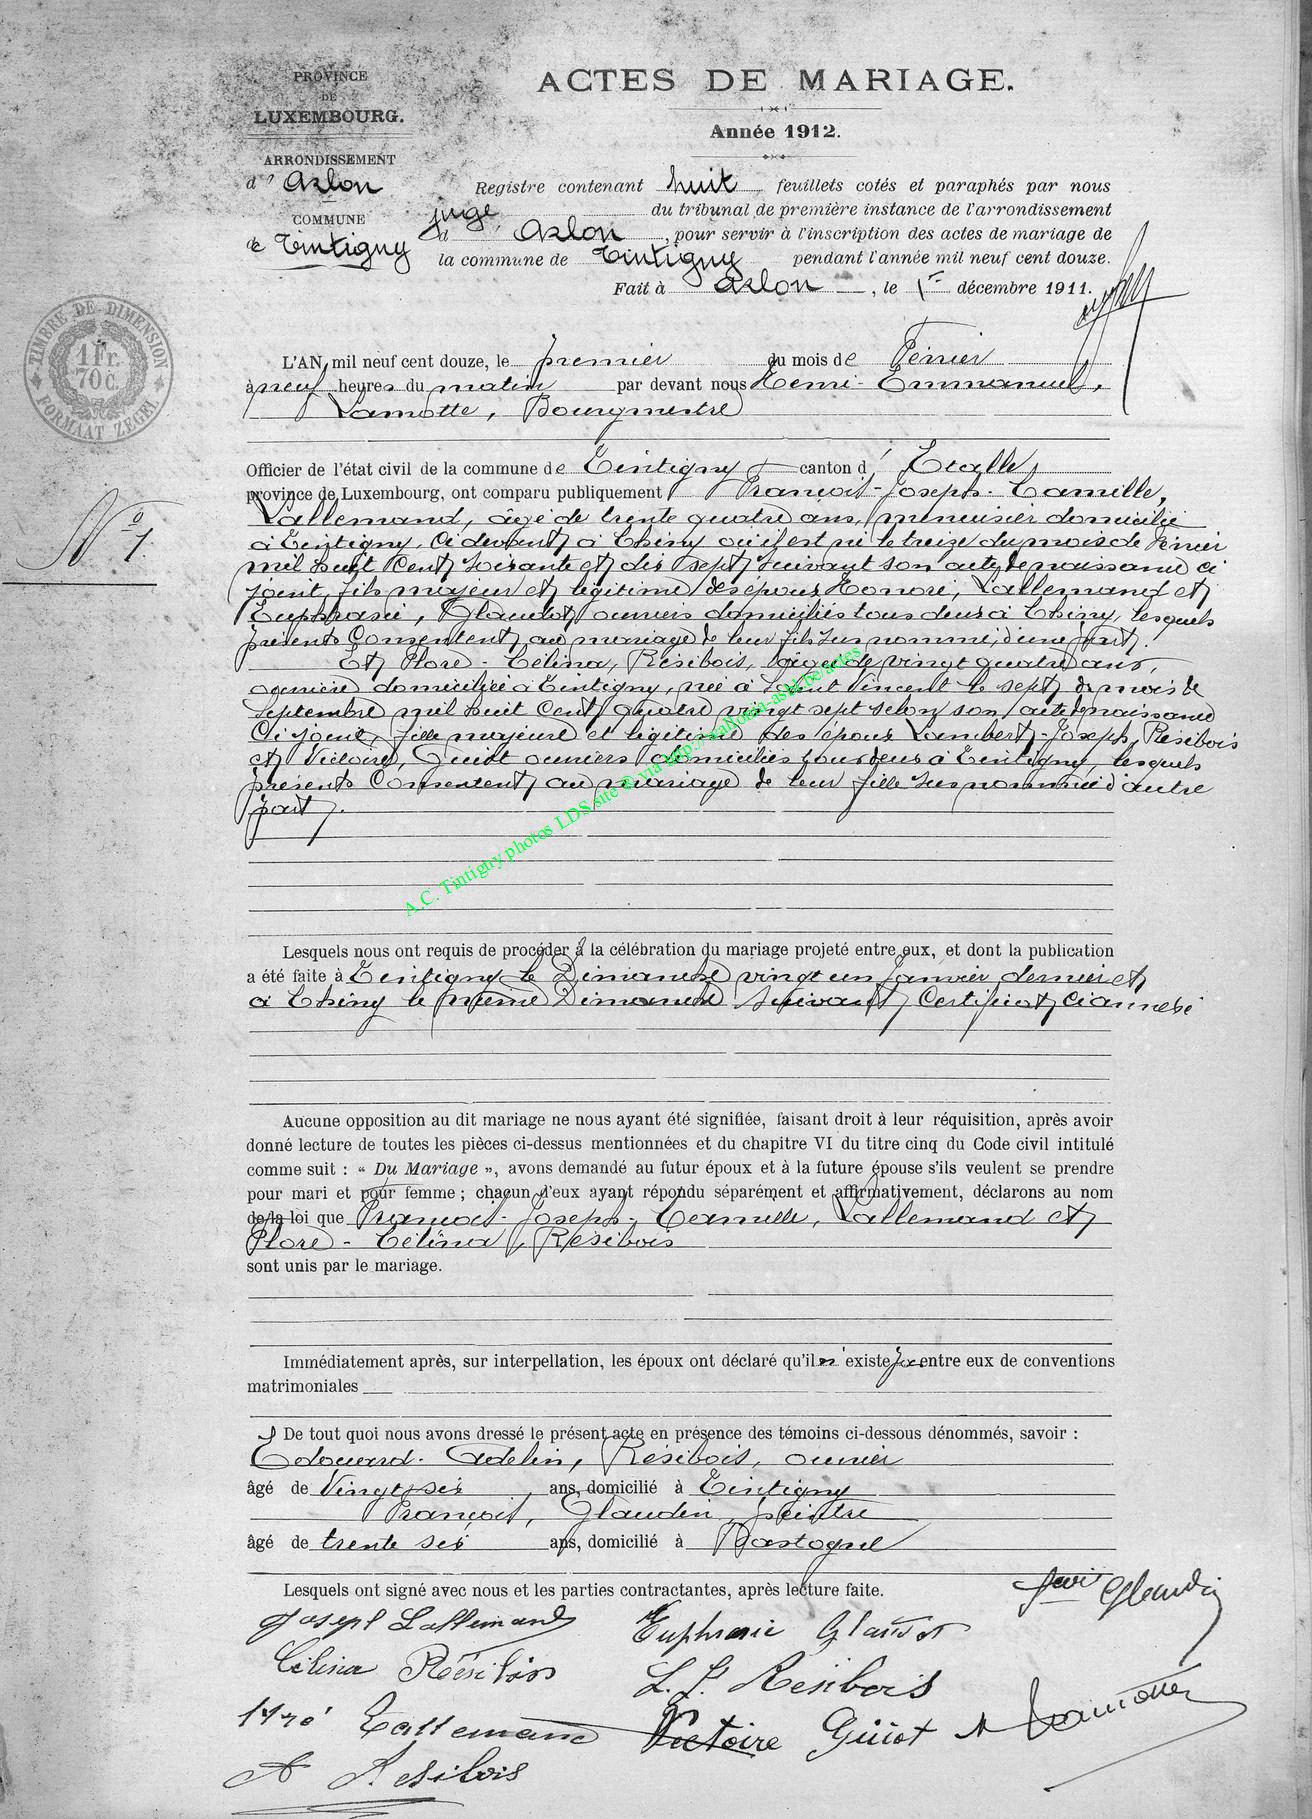 PROVINCE
DE
LUXEMBOURG.
ARRONDISSEMENT
d' Arlon
COMMUNE
de Tintigny
ACTES DE MARIAGE.
Année 1912.
Registre contenant huit feuillets cotés et paraphés par nous
juge du tribunal de première instance de l'arrondissement
d' Arlon, pour servir à l'inscription des actes de mariage de
la commune de Tintigny pendant l'année mil neuf cent douze.
Fait à Arlon, le 1er décembre 1911.
TIMBRE DE DIMENSION
1 Fr.
70 c.
FORMAAT ZEGEL
L'AN mil neuf cent douze, le premier du mois de Février
à neuf heures du matin par devant nous Henri-Emmanuel,
Lamotte, Bourgmestre
Officier de l'état civil de la commune de Tintigny canton d' Etalle,
province de Luxembourg, ont comparu publiquement François-Joseph-Camille,
No 1.
Lallemand, âgé de trente quatre ans, menuisier domicilié
à Tintigny, ci devant à Chiny où il est né le treize du mois de Février
mil huit cent soixante et dix sept suivant son acte de naissance ci
joint, fils majeur et légitime des époux Honoré, Lallemand et
Euphrasie, Glaudot ouvriers domiciliés tous deux à Chiny, lesquels
présents consentent au mariage de leur fils sus nommé, d'une part.
Et Flore-Célina, Résibois, âgée de vingt quatre ans,
ouvrière domiciliée à Tintigny, née à Saint Vincent le sept du mois de
Septembre mil huit cent quatre vingt sept selon son acte de naissance
ci joint, fille majeure et légitime des époux Lambert-Joseph, Résibois
et Victoire, Guiot ouvriers domiciliés tous deux à Tintigny, lesquels
présents consentent au mariage de leur fille sus nommée d'autre
part.
A.C. Tintigny photos LDS site @ via http://wallonia-asbl.be/actes
Lesquels nous ont requis de procéder à la célébration du mariage projeté entre eux, et dont la publication
a été faite à Tintigny le Dimanche vingt un Janvier dernier et
à Chiny le même Dimanche suivant certificat ci annexé
Aucune opposition au dit mariage ne nous ayant été signifiée, faisant droit à leur réquisition, après avoir
donné lecture de toutes les pièces ci-dessus mentionnées et du chapitre VI du titre cinq du Code civil intitulé
comme suit : « Du Mariage », avons demandé au futur époux et à la future épouse s'ils veulent se prendre
pour mari et pour femme ; chacun d'eux ayant répondu séparément et affirmativement, déclarons au nom
de la loi que François-Joseph-Camille, Lallemand et
Flore-Célina, Résibois
sont unis par le mariage.
Immédiatement après, sur interpellation, les époux ont déclaré qu'il n'existe pas entre eux de conventions
matrimoniales
De tout quoi nous avons dressé le présent acte en présence des témoins ci-dessous dénommés, savoir :
Edouard-Adelin, Résibois, ouvrier
âgé de Vingt six ans, domicilié à Tintigny
François, Glaudin, peintre
âgé de trente six ans, domicilié à Bastogne
Lesquels ont signé avec nous et les parties contractantes, après lecture faite.
Glaudin
Joseph Lallemand Euphrasie Glaudot
Célina Résibois L. J. Résibois
Hré Lallemand Victoire Guiot Lamotte
A Résibois